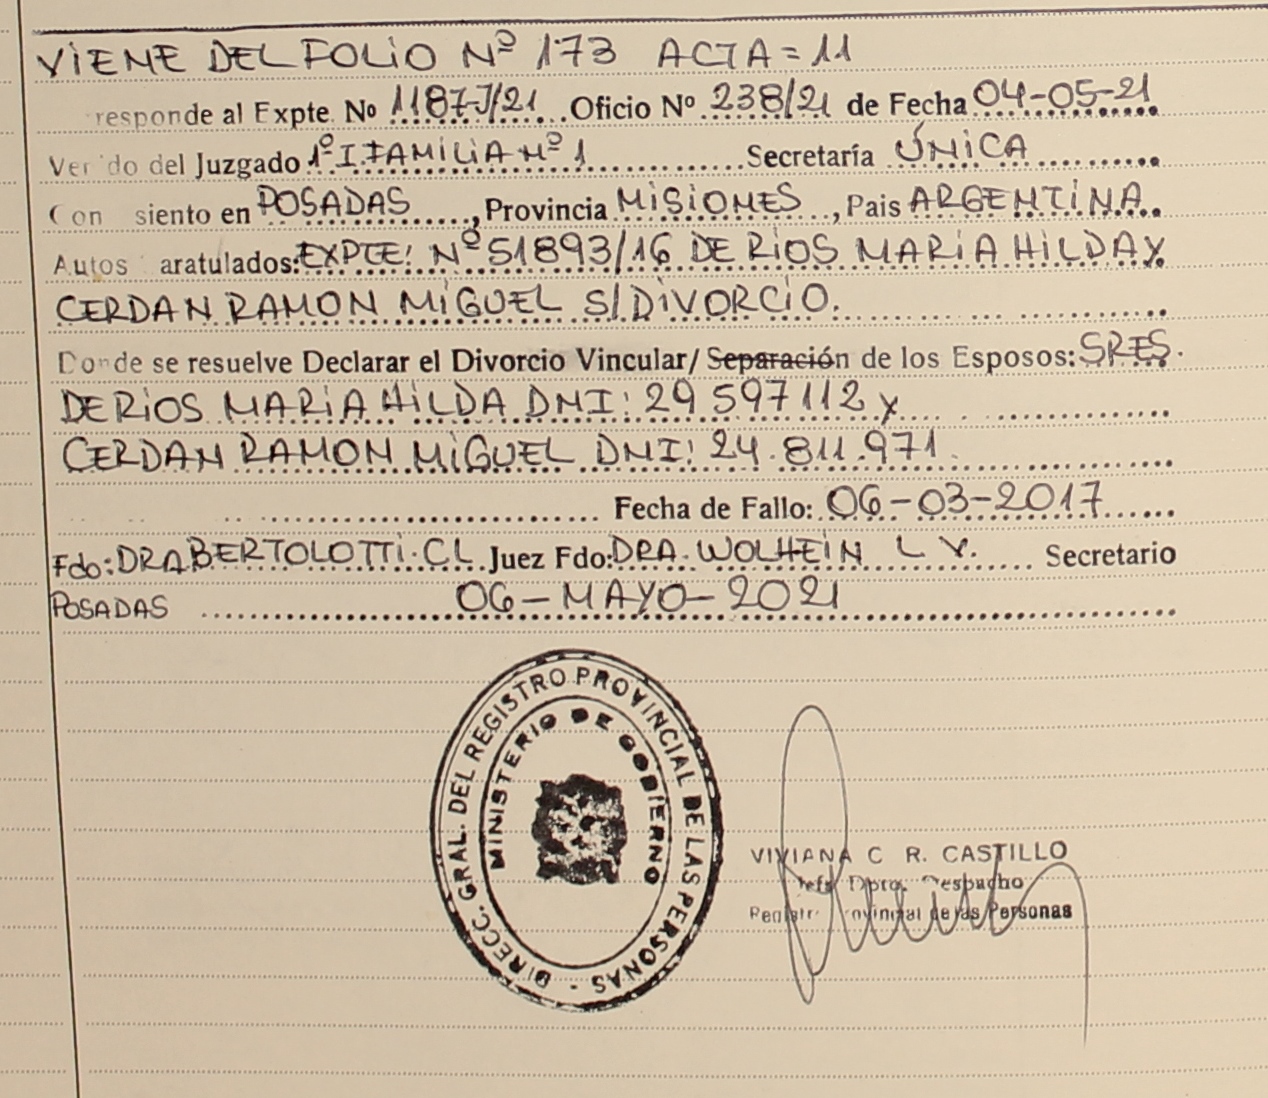 VIENE DEL FOLIO Nº 173 ACTA = 11
responde al Expte. No 1187-J/21 Oficio Nº 238/21 de Fecha 04-05-21
Ver do del Juzgado 1º I. FAMILIA Nº 1 Secretaría ÚNICA
Con siento en POSADAS, Provincia MISIONES, Pais ARGENTINA
Autos aratulados: EXPTE: Nº 51893/16 DE RIOS MARIA HILDA Y
CERDAN RAMON MIGUEL S/DIVORCIO.
Donde se resuelve Declarar el Divorcio Vincular/ Separación de los Esposos: SRES.
DE RIOS MARIA HILDA DNI: 29 597 112 y
CERDAN RAMON MIGUEL DNI: 24.811.971.
Fecha de Fallo: 06-03-2017
Fdo: DRA BERTOLOTTI. C L Juez Fdo: DRA. WOLHEIN L Y. Secretario
POSADAS 06-MAYO-2021
DIRECC. GRAL. DEL REGISTRO PROVINCIAL DE LAS PERSONAS -
MINISTERIO DE GOBIERNO
VIVIANA C R. CASTILLO
Jefe Dpto. Despacho
Registro Provincial de las Personas